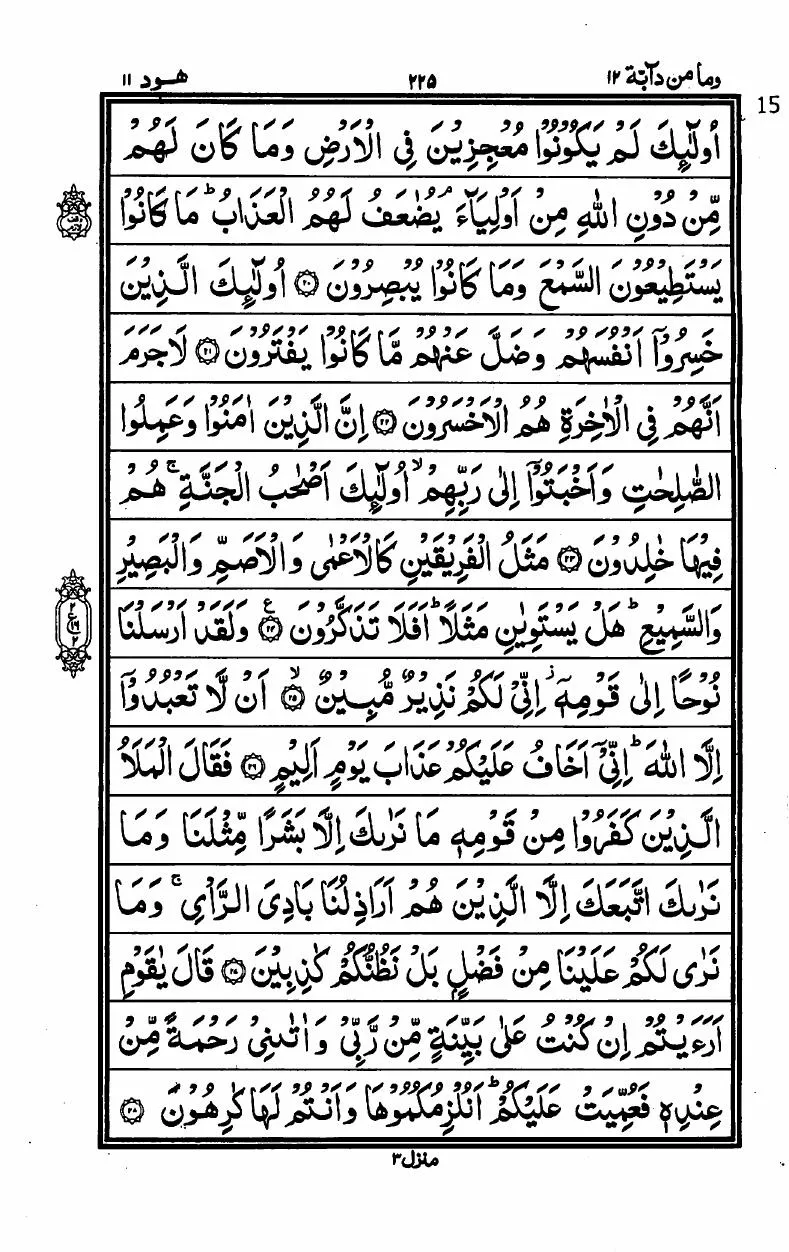 وما من دآبّة ۱۲
۲۲۵
هود ۱۱
15
اُولٰٓئِكَ لَمْ يَكُوْنُوْا مُعْجِزِيْنَ فِى الْاَرْضِ وَمَا كَانَ لَهُمْ
مِّنْ دُوْنِ اللّٰهِ مِنْ اَوْلِيَآءَ ۘ يُضٰعَفُ لَهُمُ الْعَذَابُ ؕ مَا كَانُوْا
يَسْتَطِيْعُوْنَ السَّمْعَ وَمَا كَانُوْا يُبْصِرُوْنَ ۲۰ اُولٰٓئِكَ الَّذِيْنَ
خَسِرُوْۤا اَنْفُسَهُمْ وَضَلَّ عَنْهُمْ مَّا كَانُوْا يَفْتَرُوْنَ ۲۱ لَاجَرَمَ
اَنَّهُمْ فِى الْاٰخِرَةِ هُمُ الْاَخْسَرُوْنَ ۲۲ اِنَّ الَّذِيْنَ اٰمَنُوْا وَعَمِلُوا
الصّٰلِحٰتِ وَاَخْبَتُوْۤا اِلٰى رَبِّهِمْ ۙ اُولٰٓئِكَ اَصْحٰبُ الْجَنَّةِ ۚ هُمْ
فِيْهَا خٰلِدُوْنَ ۲۳ مَثَلُ الْفَرِيْقَيْنِ كَالْاَعْمٰى وَالْاَصَمِّ وَالْبَصِيْرِ
وَالسَّمِيْعِ ؕ هَلْ يَسْتَوِيٰنِ مَثَلًا ؕ اَفَلَا تَذَكَّرُوْنَ ۲۴ ع وَلَقَدْ اَرْسَلْنَا
نُوْحًا اِلٰى قَوْمِهٖۤ ز اِنِّىْ لَكُمْ نَذِيْرٌ مُّبِيْنٌ ۲۵ ۙ اَنْ لَّا تَعْبُدُوْۤا
اِلَّا اللّٰهَ ؕ اِنِّىْۤ اَخَافُ عَلَيْكُمْ عَذَابَ يَوْمٍ اَلِيْمٍ ۲۶ فَقَالَ الْمَلَاُ
الَّذِيْنَ كَفَرُوْا مِنْ قَوْمِهٖ مَا نَرٰىكَ اِلَّا بَشَرًا مِّثْلَنَا وَمَا
نَرٰىكَ اتَّبَعَكَ اِلَّا الَّذِيْنَ هُمْ اَرَاذِلُنَا بَادِىَ الرَّاْىِ ۚ وَمَا
نَرٰى لَكُمْ عَلَيْنَا مِنْ فَضْلٍۭ بَلْ نَظُنُّكُمْ كٰذِبِيْنَ ۲۷ قَالَ يٰقَوْمِ
اَرَءَيْتُمْ اِنْ كُنْتُ عَلٰى بَيِّنَةٍ مِّنْ رَّبِّىْ وَاٰتٰىنِىْ رَحْمَةً مِّنْ
عِنْدِهٖ فَعُمِّيَتْ عَلَيْكُمْ ؕ اَنُلْزِمُكُمُوْهَا وَاَنْتُمْ لَهَا كٰرِهُوْنَ ۲۸
وقف لازم
۲
ع
۲
منزل۳